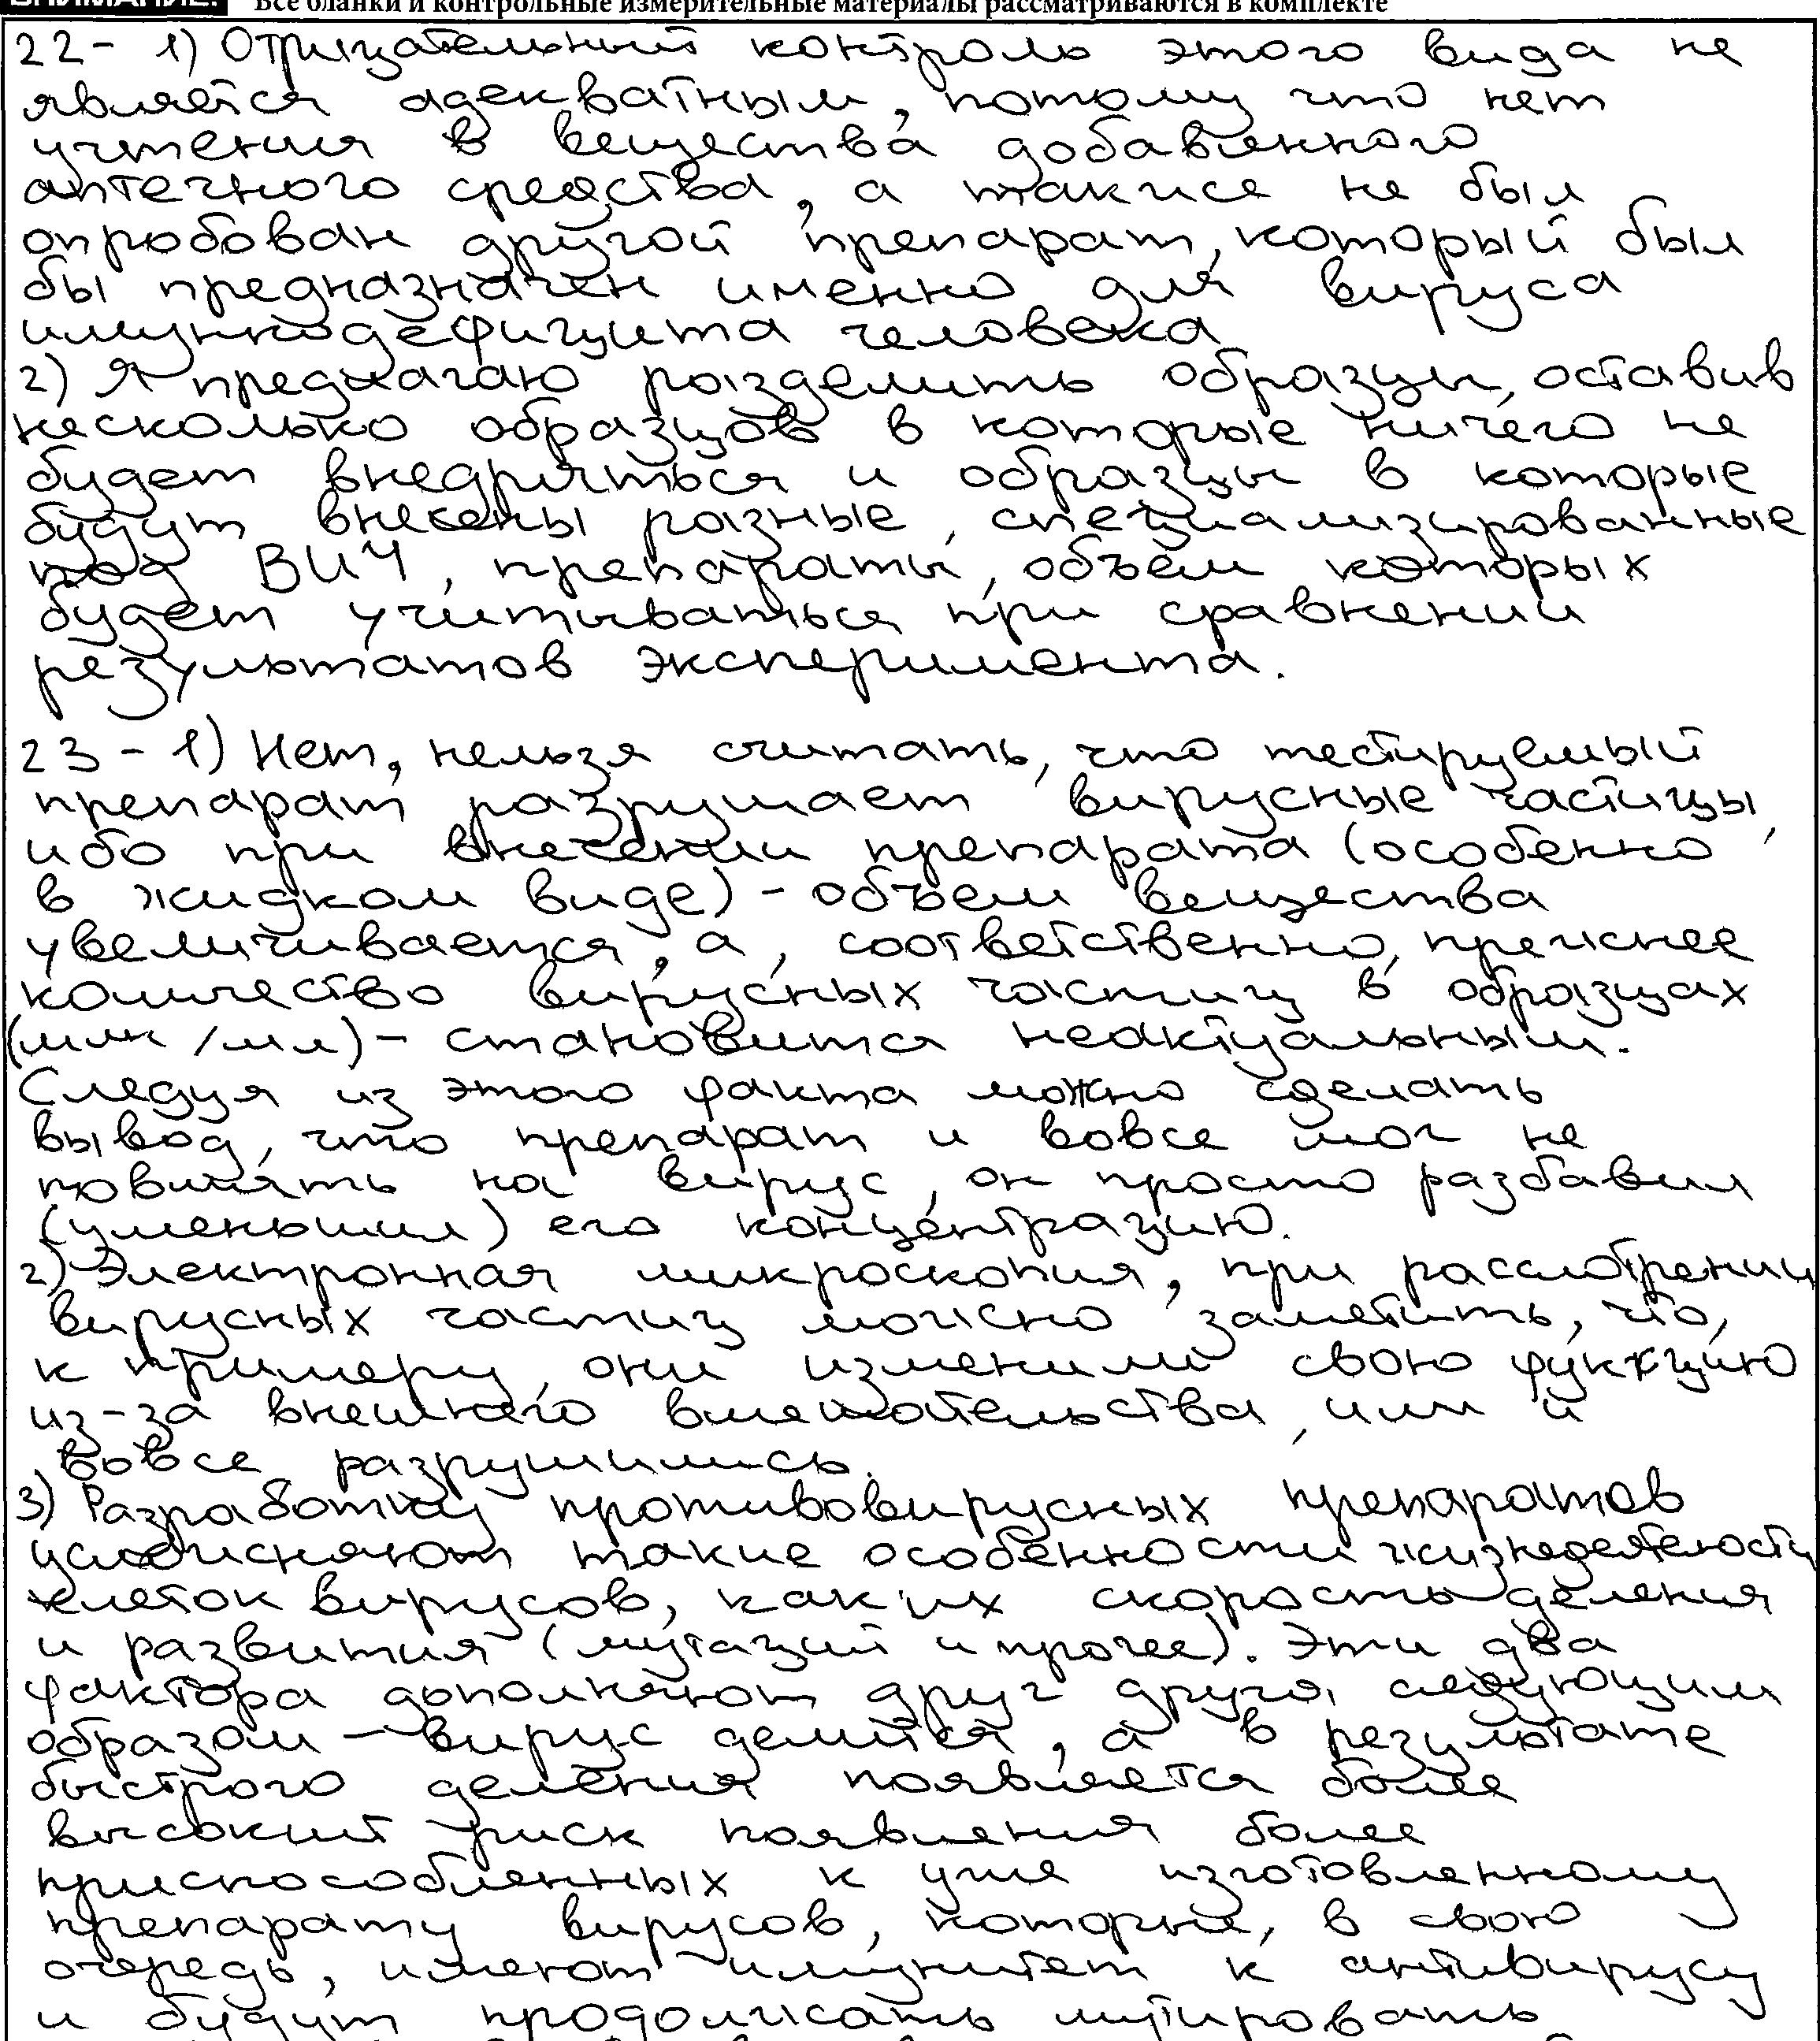 ВНИМАНИЕ! Все бланки и контрольные измерительные материалы рассматриваются в комплекте
22- 1) Отрицательный контроль этого вида не
является адекватным, потому что нет
учтения в вещества добавленного
аптечного средства, а также не был
опробован другой препарат, который был
бы предназначен именно для вируса
иммунодефицита человека
2) Я предлагаю разделить образцы, оставив
несколько образцов в которые ничего не
будет внедряться и образцы в которые
будут внесены разные, специализированные
под ВИЧ, препараты, объём которых
будет учитываться при сравнении
результатов эксперимента.
23 - 1) Нет, нельзя считать, что тестируемый
препарат разрушает вирусные частицы,
ибо при внесении препарата (особенно
в жидком виде) - объем вещества
увеличивается, а, соответственно, прежнее
количество вирусных частиц в образцах
(млн /мл) - становится неактуальным.
Следуя из этого факта можно сделать
вывод, что препарат и вовсе мог не
повлиять на вирус, он просто разбавил
(уменьшил) его концентрацию.
2) Электронная микроскопия, при рассмотрении
вирусных частиц можно заметить, что,
к примеру, они изменили свою функцию
из-за внешнего вмешательства, или и
вовсе разрушились.
3) Разработку противовирусных препаратов
усложняют такие особенности жизнедеятелости
клеток вирусов, как их скорость деления
и развития (мутаций и прочее). Эти два
фактора дополняют друг друга, следующим
образом - вирус делится, а в результате
быстрого деления появляется более
высокий риск появления более
приспособленных к уже изготовленному
препарату вирусов, которые, в свою
очередь, имеют иммунитет к антивирусу
и будут продолжать мутировать